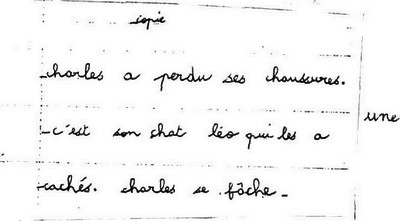 copie
charles a perdu ses chaussures.
c'est son chat léo qui les a
cachés. charles se fâche.
une